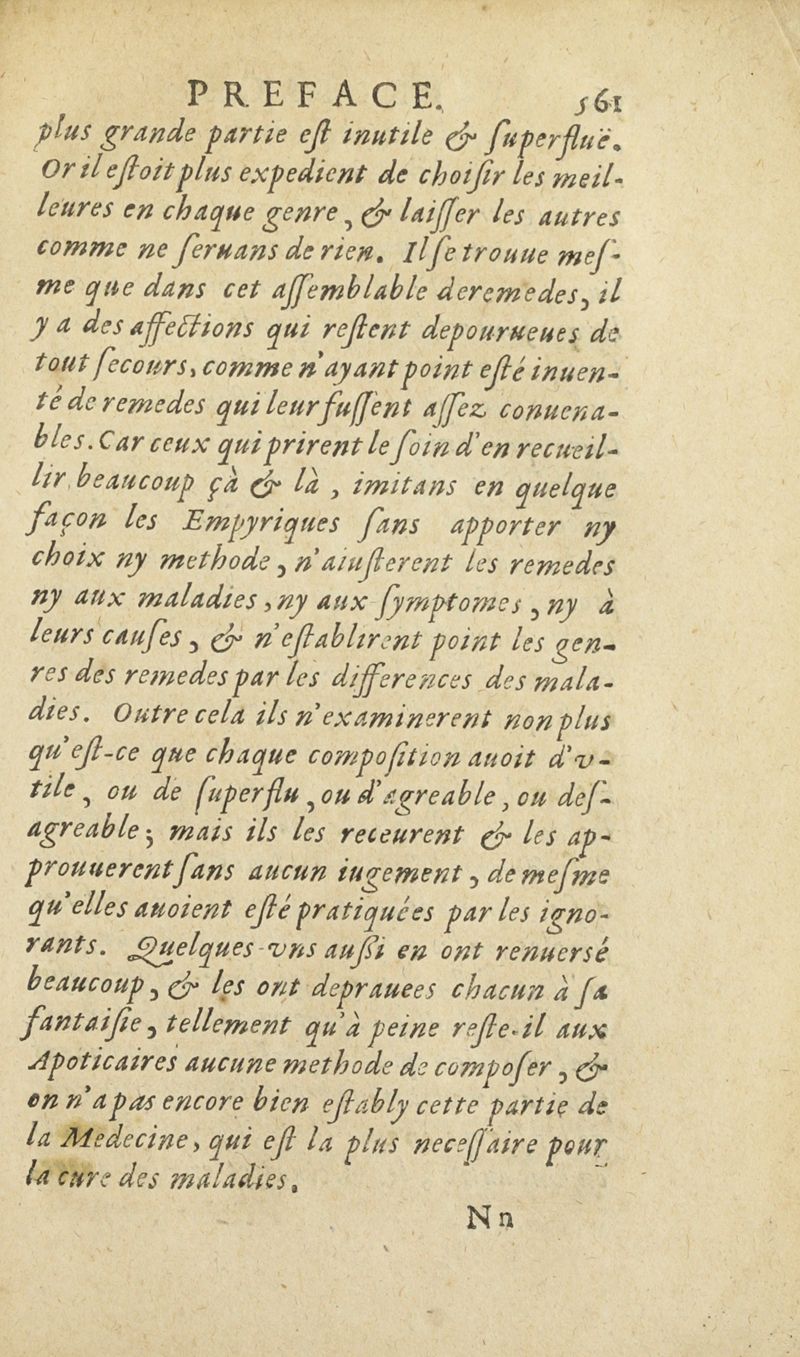 PREFACE. 561
plus grande partie eſt inutile & ſuperfluë.
Or il eſtoit plus expedient de choiſir les meil-
leures en chaque genre, & laiſſer les autres
comme ne ſeruans de rien. Il ſe trouue meſ-
me que dans cet aſſemblable de remedes, il
y a des affections qui reſtent depourueues de
tout ſecours, comme n'ayant point eſté inuen-
té de remedes qui leur fuſſent aſſez conuena-
bles. Car ceux qui prirent le ſoin d'en recueil-
lir beaucoup çà & là, imitans en quelque
façon les Empyriques ſans apporter ny
choix ny methode, n'aiuſterent les remedes
ny aux maladies, ny aux ſymptomes, ny à
leurs cauſes, & n'eſtablirent point les gen-
res des remedes par les differences des mala-
dies. Outre cela ils n'examinerent non plus
qu'eſt-ce que chaque compoſition auoit d'v-
tile, ou de ſuperflu, ou d'agreable, ou deſ-
agreable; mais ils les receurent & les ap-
prouuerent ſans aucun iugement, de meſme
qu'elles auoient eſté pratiquées par les igno-
rants. Quelques-vns auſſi en ont renuersé
beaucoup, & les ont deprauees chacun à ſa
fantaiſie, tellement qu'à peine reſte-il aux
Apoticaires aucune methode de compoſer, &
on n'a pas encore bien eſtably cette partie de
la Medecine, qui eſt la plus neceſſaire pour
la cure des maladies.
Nn